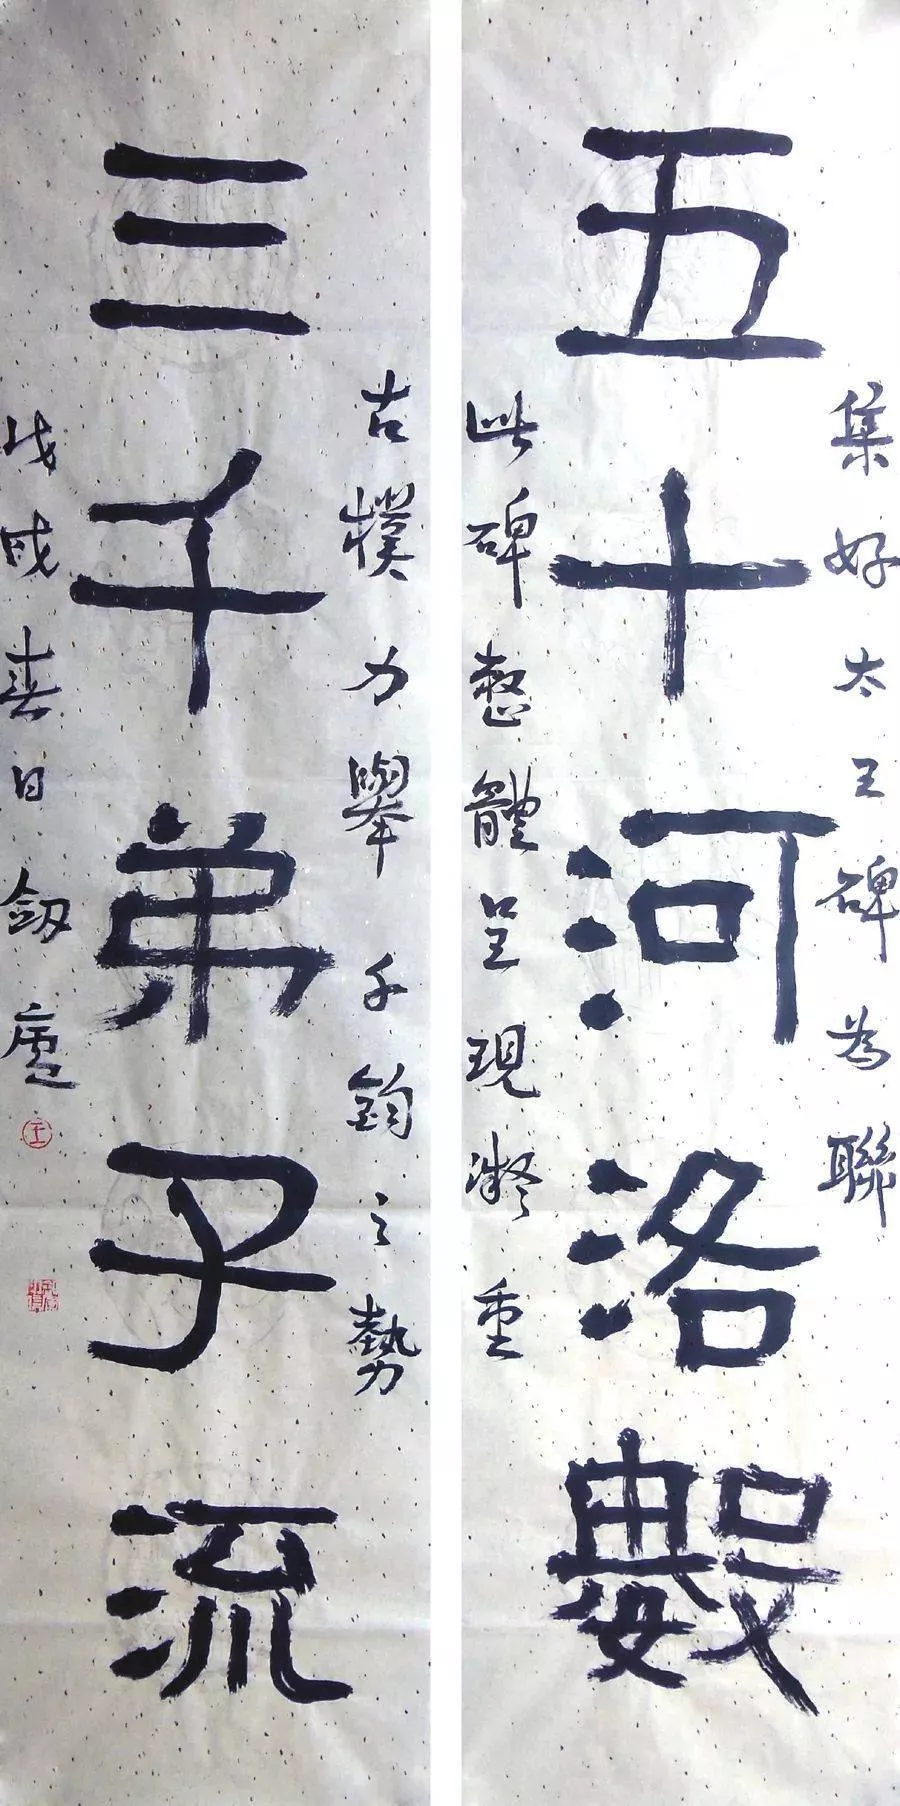 五十河洛數
集好太王碑為聯
此碑整體呈現凝重
三千弟子流
古樸力舉千鈞之勢
戊戌春日劔廬